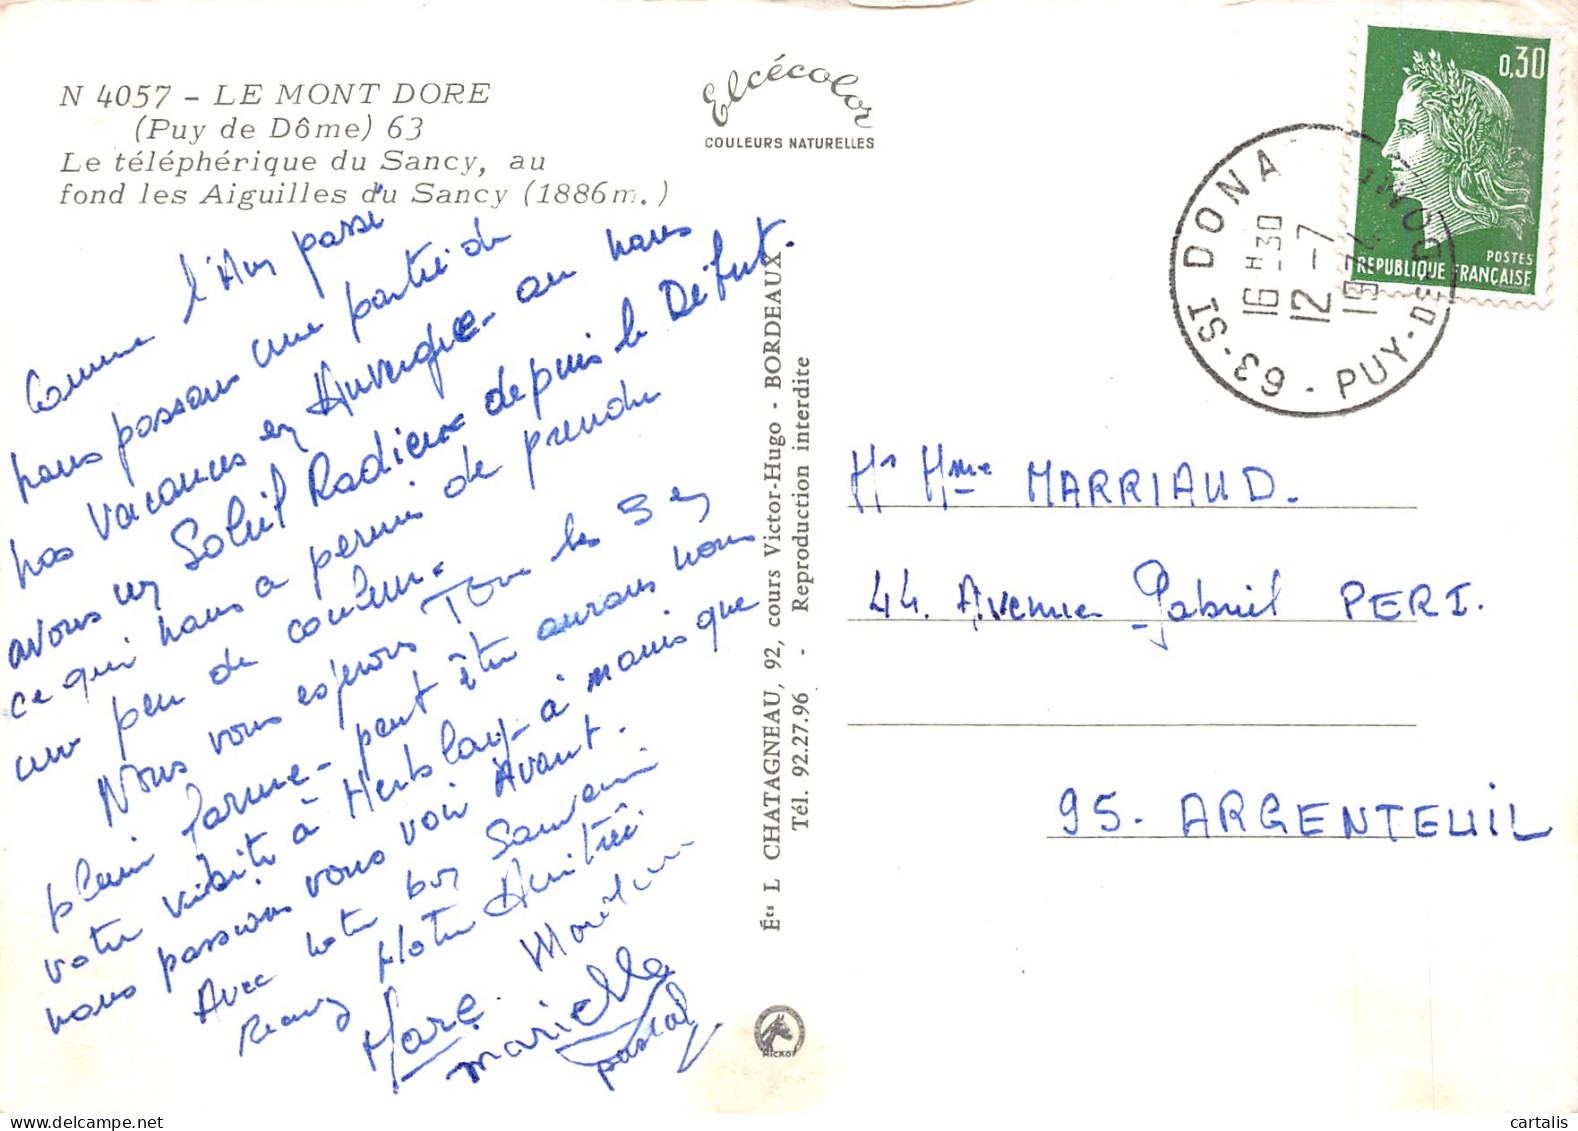 N 4057 - LE MONT DORE
(Puy de Dôme) 63
Le téléphérique du Sancy, au
fond les Aiguilles du Sancy (1886m.)
Elcécolor
COULEURS NATURELLES
0,30
POSTES
REPUBLIQUE FRANÇAISE
63 - ST DONAT PUY-DE-DOME
16 H 30
12 - 7
Comme l'An passé
nous passons une partie de
nos vacances en Auvergne - ou nous
avons un Soleil Radieux depuis le Début.
ce qui nous a permis de prendre
un peu de couleur.
Nous vous espérons Tous les 3 en
pleine forme - peut être aurons nous
votre visite à Herblay - à moins que
nous passions vous voir Avant.
Avec notre bon Souvenir
Notre Amitié
Marc
Marielle
pascal
Éts L CHATAGNEAU, 92, cours Victor-Hugo - BORDEAUX
Tél. 92.27.96 - Reproduction interdite
MICRO
Mr Mme MARRIAUD.
44. Avenue Gabriel PERI.
95. ARGENTEUIL
cartalis.com